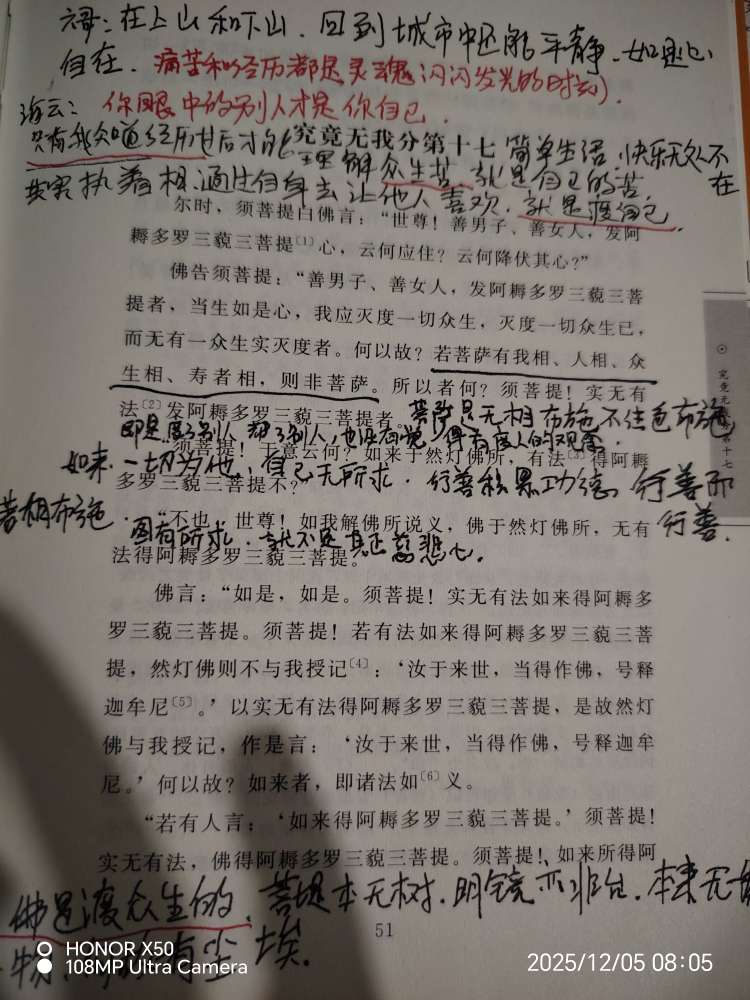 六哥：在上山和下山．回到城市中还能平静．如是心
自在．痛苦和经历都是灵魂闪闪发光的时刻．
海云：你眼中的别人才是你自己．
只有我众随经历过后才能理解众生苦．就是自己的苦．
究竟无我分第十七
简单生活．快乐无处不在
其实执着相．通过自身去让他人喜欢．就是渡自己．
尔时，须菩提白佛言：“世尊！善男子、善女人，发阿
耨多罗三藐三菩提〔1〕心，云何应住？云何降伏其心？”
佛告须菩提：“善男子、善女人，发阿耨多罗三藐三菩
提者，当生如是心，我应灭度一切众生，灭度一切众生已，
而无有一众生实灭度者。何以故？若菩萨有我相、人相、众
生相、寿者相，则非菩萨。所以者何？须菩提！实无有
法〔2〕发阿耨多罗三藐三菩提者。
菩萨是无相布施．不住色布施
即是度了别人，却了别人，也没有觉得有度人的观念．
“须菩提！于意云何？如来于然灯佛所，有法〔3〕得阿耨
多罗三藐三菩提不？”
如来．一切为他，自己无所求．行善积累功德，行善即
行善．
著相布施 因有所求，就不是真正慈悲心．
“不也，世尊！如我解佛所说义，佛于然灯佛所，无有
法得阿耨多罗三藐三菩提。”
佛言：“如是，如是。须菩提！实无有法如来得阿耨多
罗三藐三菩提。须菩提！若有法如来得阿耨多罗三藐三菩
提，然灯佛则不与我授记〔4〕：‘汝于来世，当得作佛，号释
迦牟尼〔5〕。’以实无有法得阿耨多罗三藐三菩提，是故然灯
佛与我授记，作是言：‘汝于来世，当得作佛，号释迦牟
尼。’何以故？如来者，即诸法如〔6〕义。
“若有人言：‘如来得阿耨多罗三藐三菩提。’须菩提！
实无有法，佛得阿耨多罗三藐三菩提。须菩提！如来所得阿
佛是渡众生的．菩提本无树．明镜亦非台．本来无
物 有尘埃．
51
究竟无我分第十七
HONOR X50
108MP Ultra Camera
2025/12/05 08:05